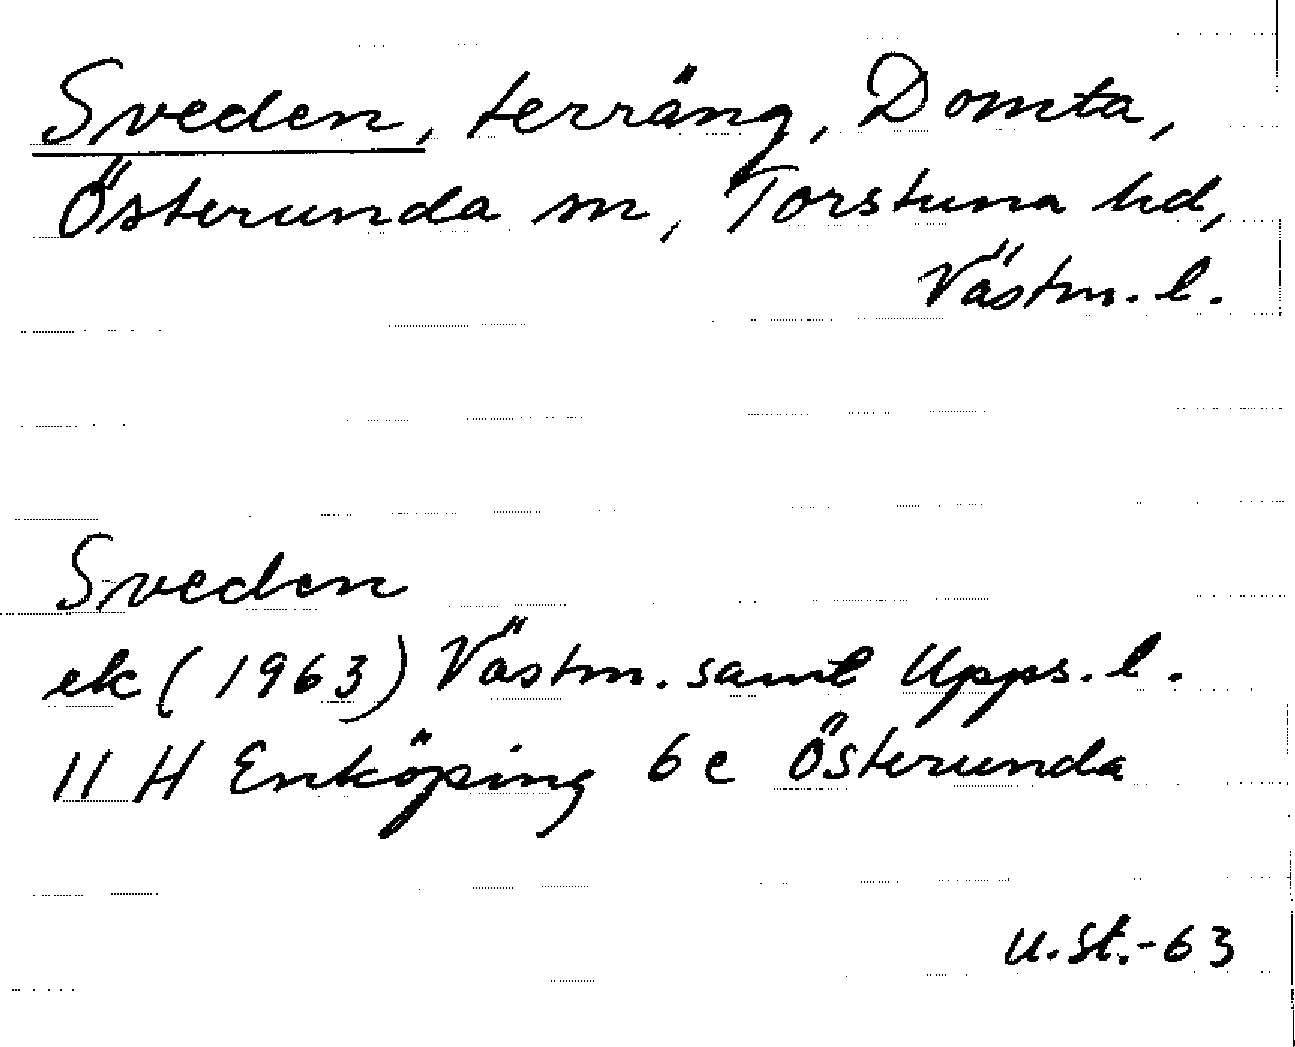 Sveden, terräng, Domta,
Österunda sn, Torstuna hd,
Västm. l.
Sveden
ek (1963) Västm. samt Upps. l.
11 H Enköping 6 c Österunda
U.St.-63